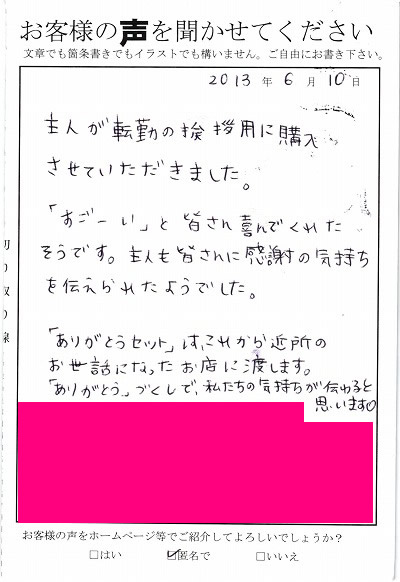 お客様の声を聞かせてください
文章でも箇条書きでもイラストでも構いません。ご自由にお書き下さい。
2013年6月10日
主人が転勤の挨拶用に購入
させていただきました。
「すごーい」と皆さん喜んでくれた
そうです。主人も皆さんに感謝の気持ち
を伝えられたようでした。
「ありがとうセット」は、これから近所の
お世話になったお店に渡します。
「ありがとう」づくしで、私たちの気持ちが伝わると
思います。
切り取り線
お客様の声をホームページ等でご紹介してよろしいでしょうか？
□はい ☑匿名で □いいえ